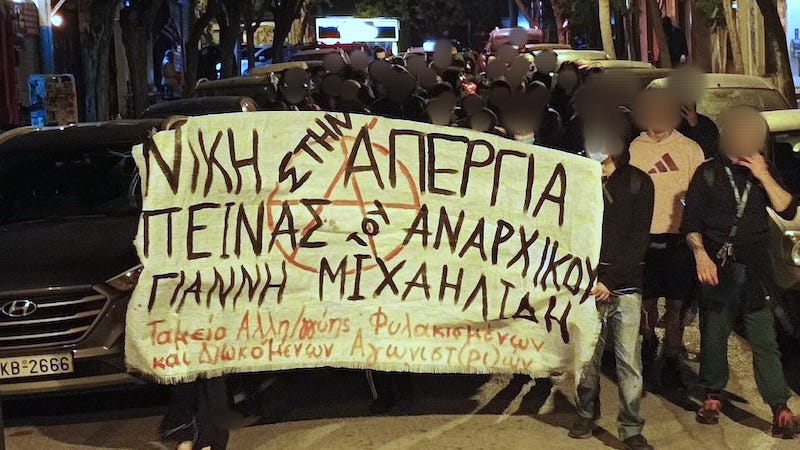 ΝΙΚΗ ΣΤΗΝ ΑΠΕΡΓΙΑ
ΠΕΙΝΑΣ ΤΟΥ ΑΝΑΡΧΙΚΟΥ
ΓΙΑΝΝΗ ΜΙΧΑΗΛΙΔΗ
Ταμείο Αλλη/γγύης Φυλακισμένων
και Διωκομένων Αγωνιστ(ρι)ών
HYUNDAI
KB-2666